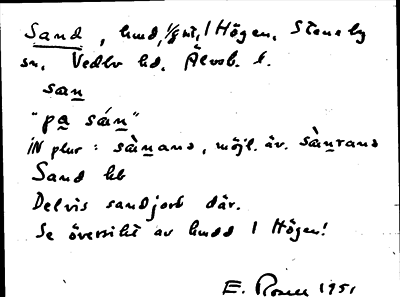 Sand, hmd, 1/8 mt, 1 Högen, Steneby
sn, Vedbo hd, Älvsb. l.
san
"pa sán"
iN plur: sànans, möjl. äv. sàntans
Sand hb
Delvis sandjord där.
Se översikt av hmdd 1 Högen!
E. Rosell 1951